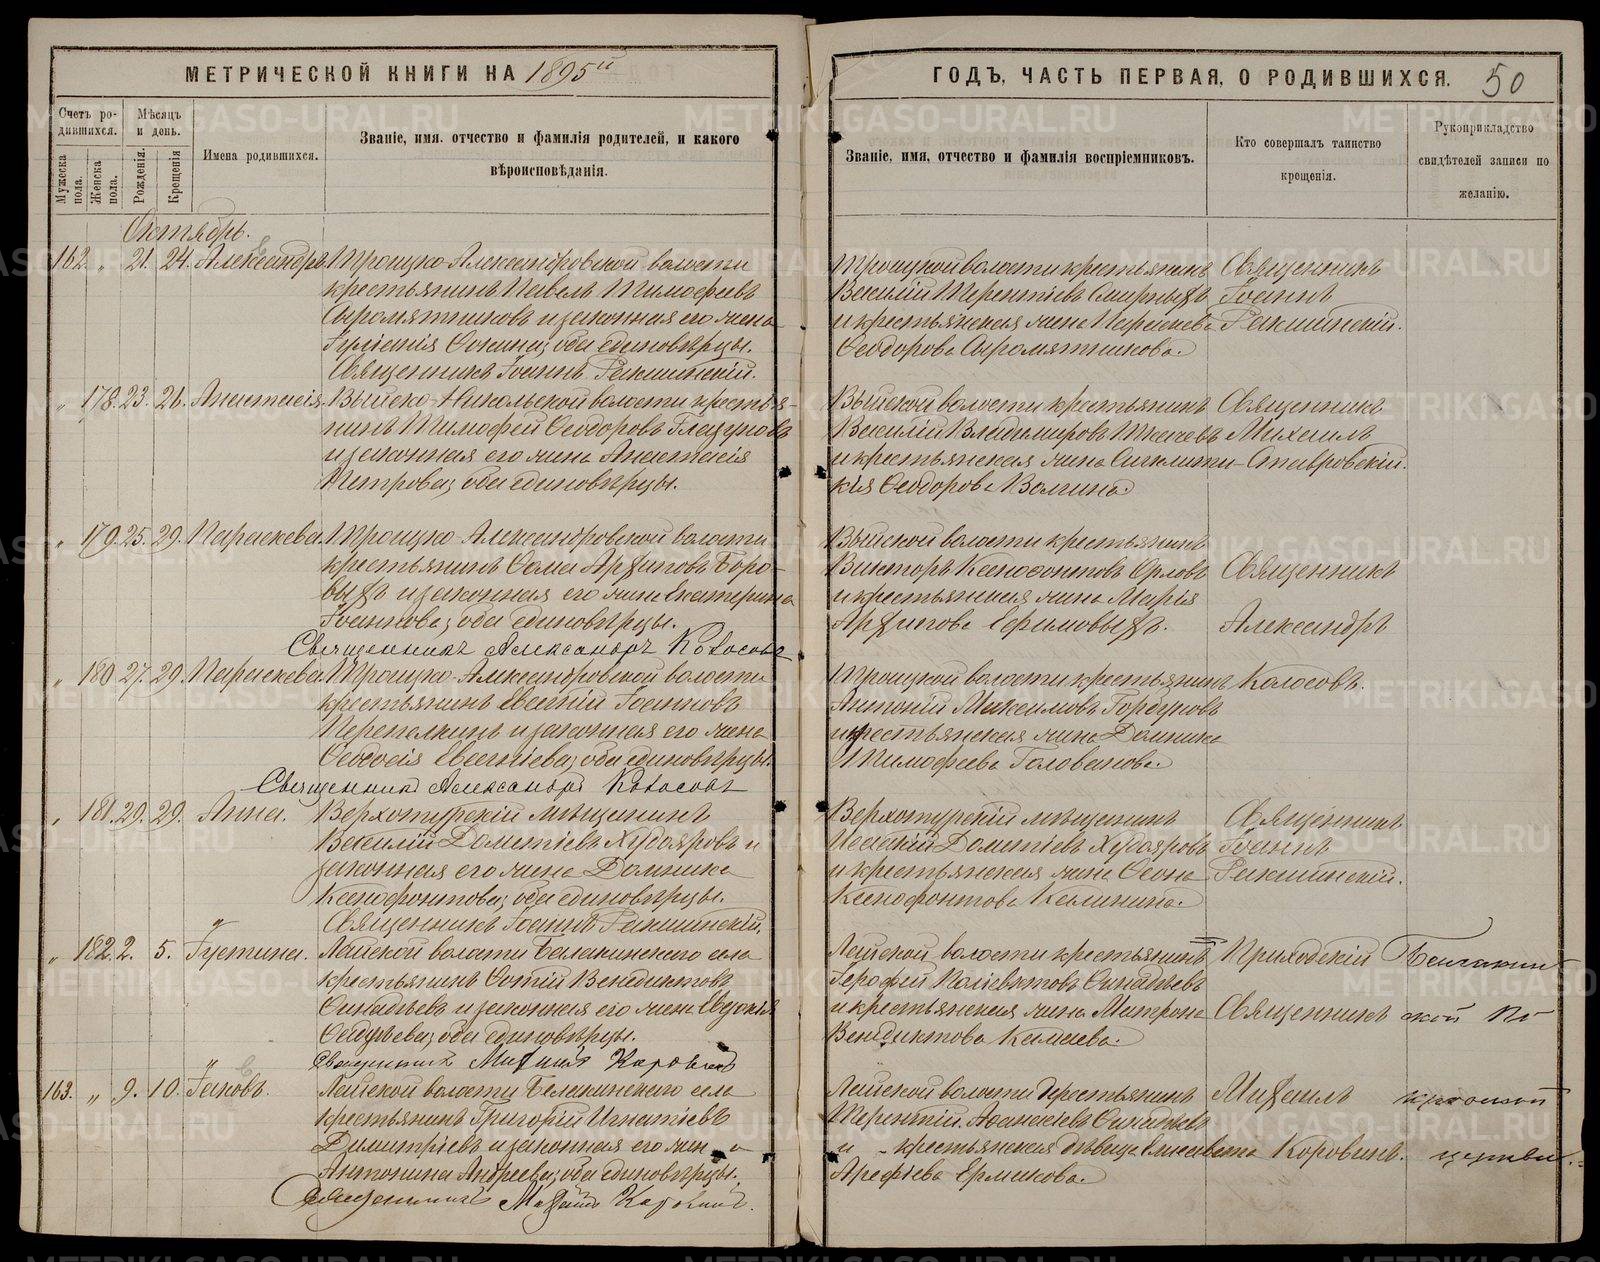 МЕТРИЧЕСКОЙ КНИГИ НА 1895й
Счетъ родившихся.
Мужеска пола.
Женска пола.
Мѣсяцъ и день.
Рожденія.
Крещенія
Имена родившихся.
Званіе, имя. отчество и фамилія родителей, и какого
вѣроисповѣданія.
Октябрь.
162. „ 21. 24. Александръ Троицко-Александровской волости
крестьянинъ Павелъ Тимофеевъ
Сыромятниковъ и законная его жена
Фокина; оба единовѣрцы.
Священникъ Іоаннъ
„ 178. 23. 26. Анастасія. Выйско-Никольской волости крестья-
нинъ Тимофей Ѳеодоровъ Глазуновъ
и законная его жена Анастасія
Петрова; оба единовѣрцы.
„ 179. 25. 29. Параскева. Троицко-Александровской волости
крестьянинъ Ѳома Архиповъ Боро-
выхъ и законная его жена Екатерина
Іоаннова; оба единовѣрцы.
Священникъ Александръ Колосовъ
„ 180. 27. 29. Параскева Троицко-Александровской волости
крестьянинъ Евгеній Іоанновъ
Перепелкинъ и законная его жена
Ѳеодосія Евгеніева; оба единовѣрцы.
Священникъ Александръ Колосовъ
„ 181. 29. 29. Анна. Верхотурскій мѣщанинъ
Василій Дометіевъ Худояровъ и
законная его жена Домника
Ксенофонтова; оба единовѣрцы.
Священникъ Іоаннъ
„ 182. 2. 5. Іустина. Лайской волости Балакинскаго села
крестьянинъ Фотій Венедиктовъ
и законная его жена Евдокія
оба единовѣрцы.
Священникъ Михаилъ Коровинъ
163. „ 9. 10. Іаковъ. Лайской волости Балакинскаго села
крестьянинъ Григорій Игнатіевъ
Димитріевъ и законная его жена
Антонина Андреева; оба единовѣрцы.
Священникъ Михаилъ Коровинъ.
ГОДЪ, ЧАСТЬ ПЕРВАЯ, О РОДИВШИХСЯ. 50
Званіе, имя, отчество и фамилія воспріемниковъ.
Кто совершалъ таинство
крещенія.
Рукоприкладство
свидѣтелей записи по
желанію.
Троицкой волости крестьянинъ Священникъ
Василій Терентіевъ Смирныхъ Іоаннъ
и крестьянская жена Параскева
Ѳеодорова Сыромятникова.
Выйской волости крестьянинъ Священникъ
Василій Владимировъ Ткачевъ Михаилъ
и крестьянская жена Синклити- Ставровскій.
кія Ѳеодорова Волгина.
Выйской волости крестьянинъ
Викторъ Ксенофонтовъ Орловъ Священникъ
и крестьянская жена Марія
Архипова Ефимовыхъ. Александръ
Троицкой волости крестьянинъ Колосовъ.
Антоній Максимовъ Горбуновъ
и крестьянская жена Домника
Тимофеева Голованова.
Верхотурскій мѣщанинъ Священникъ
Исаакій Дометіевъ Худояровъ Іоаннъ
и крестьянская жена
Ксенофонтова Калинина.
Лайской волости крестьянинъ Приходскій
и крестьянская жена Матрона Священникъ
Венедиктова Камаева.
Лайской волости крестьянинъ Михаилъ
Терентій Аѳанасіевъ
и крестьянская дѣвица Елисавета Коровинъ. церкви.
Арефьева Ермакова.
METRIKI.GASO-URAL.RU